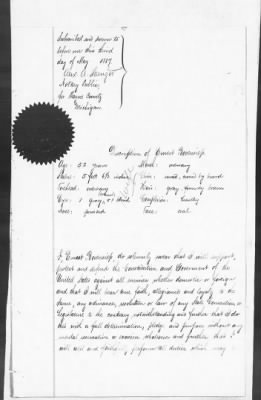 Subscribed and sworn to
before me this third
day of May 1887
Notary Public
for Wayne County
Michigan
Description of Ernest
Age: 52 years Mouth: ordinary
Stature: 5 feet Chin:
Forehead: ordinary Hair: gray, formerly brown
Eyes: 1 gray, 1 blind Complexion: healthy
Nose: Face: oval
I, Ernest do solemnly swear that I will support,
protect and defend the Constitution and Government of the
United States against all enemies whether domestic or foreign
and that I will bear true faith, allegiance and loyalty to the
same, any ordinance, resolution or law of any State Convention or
Legislature to the contrary notwithstanding and further that I do
this with a full determination, pledge and purpose without any
mental reservation or evasion whatsoever and further that I
will well and faithfully perform all duties which may